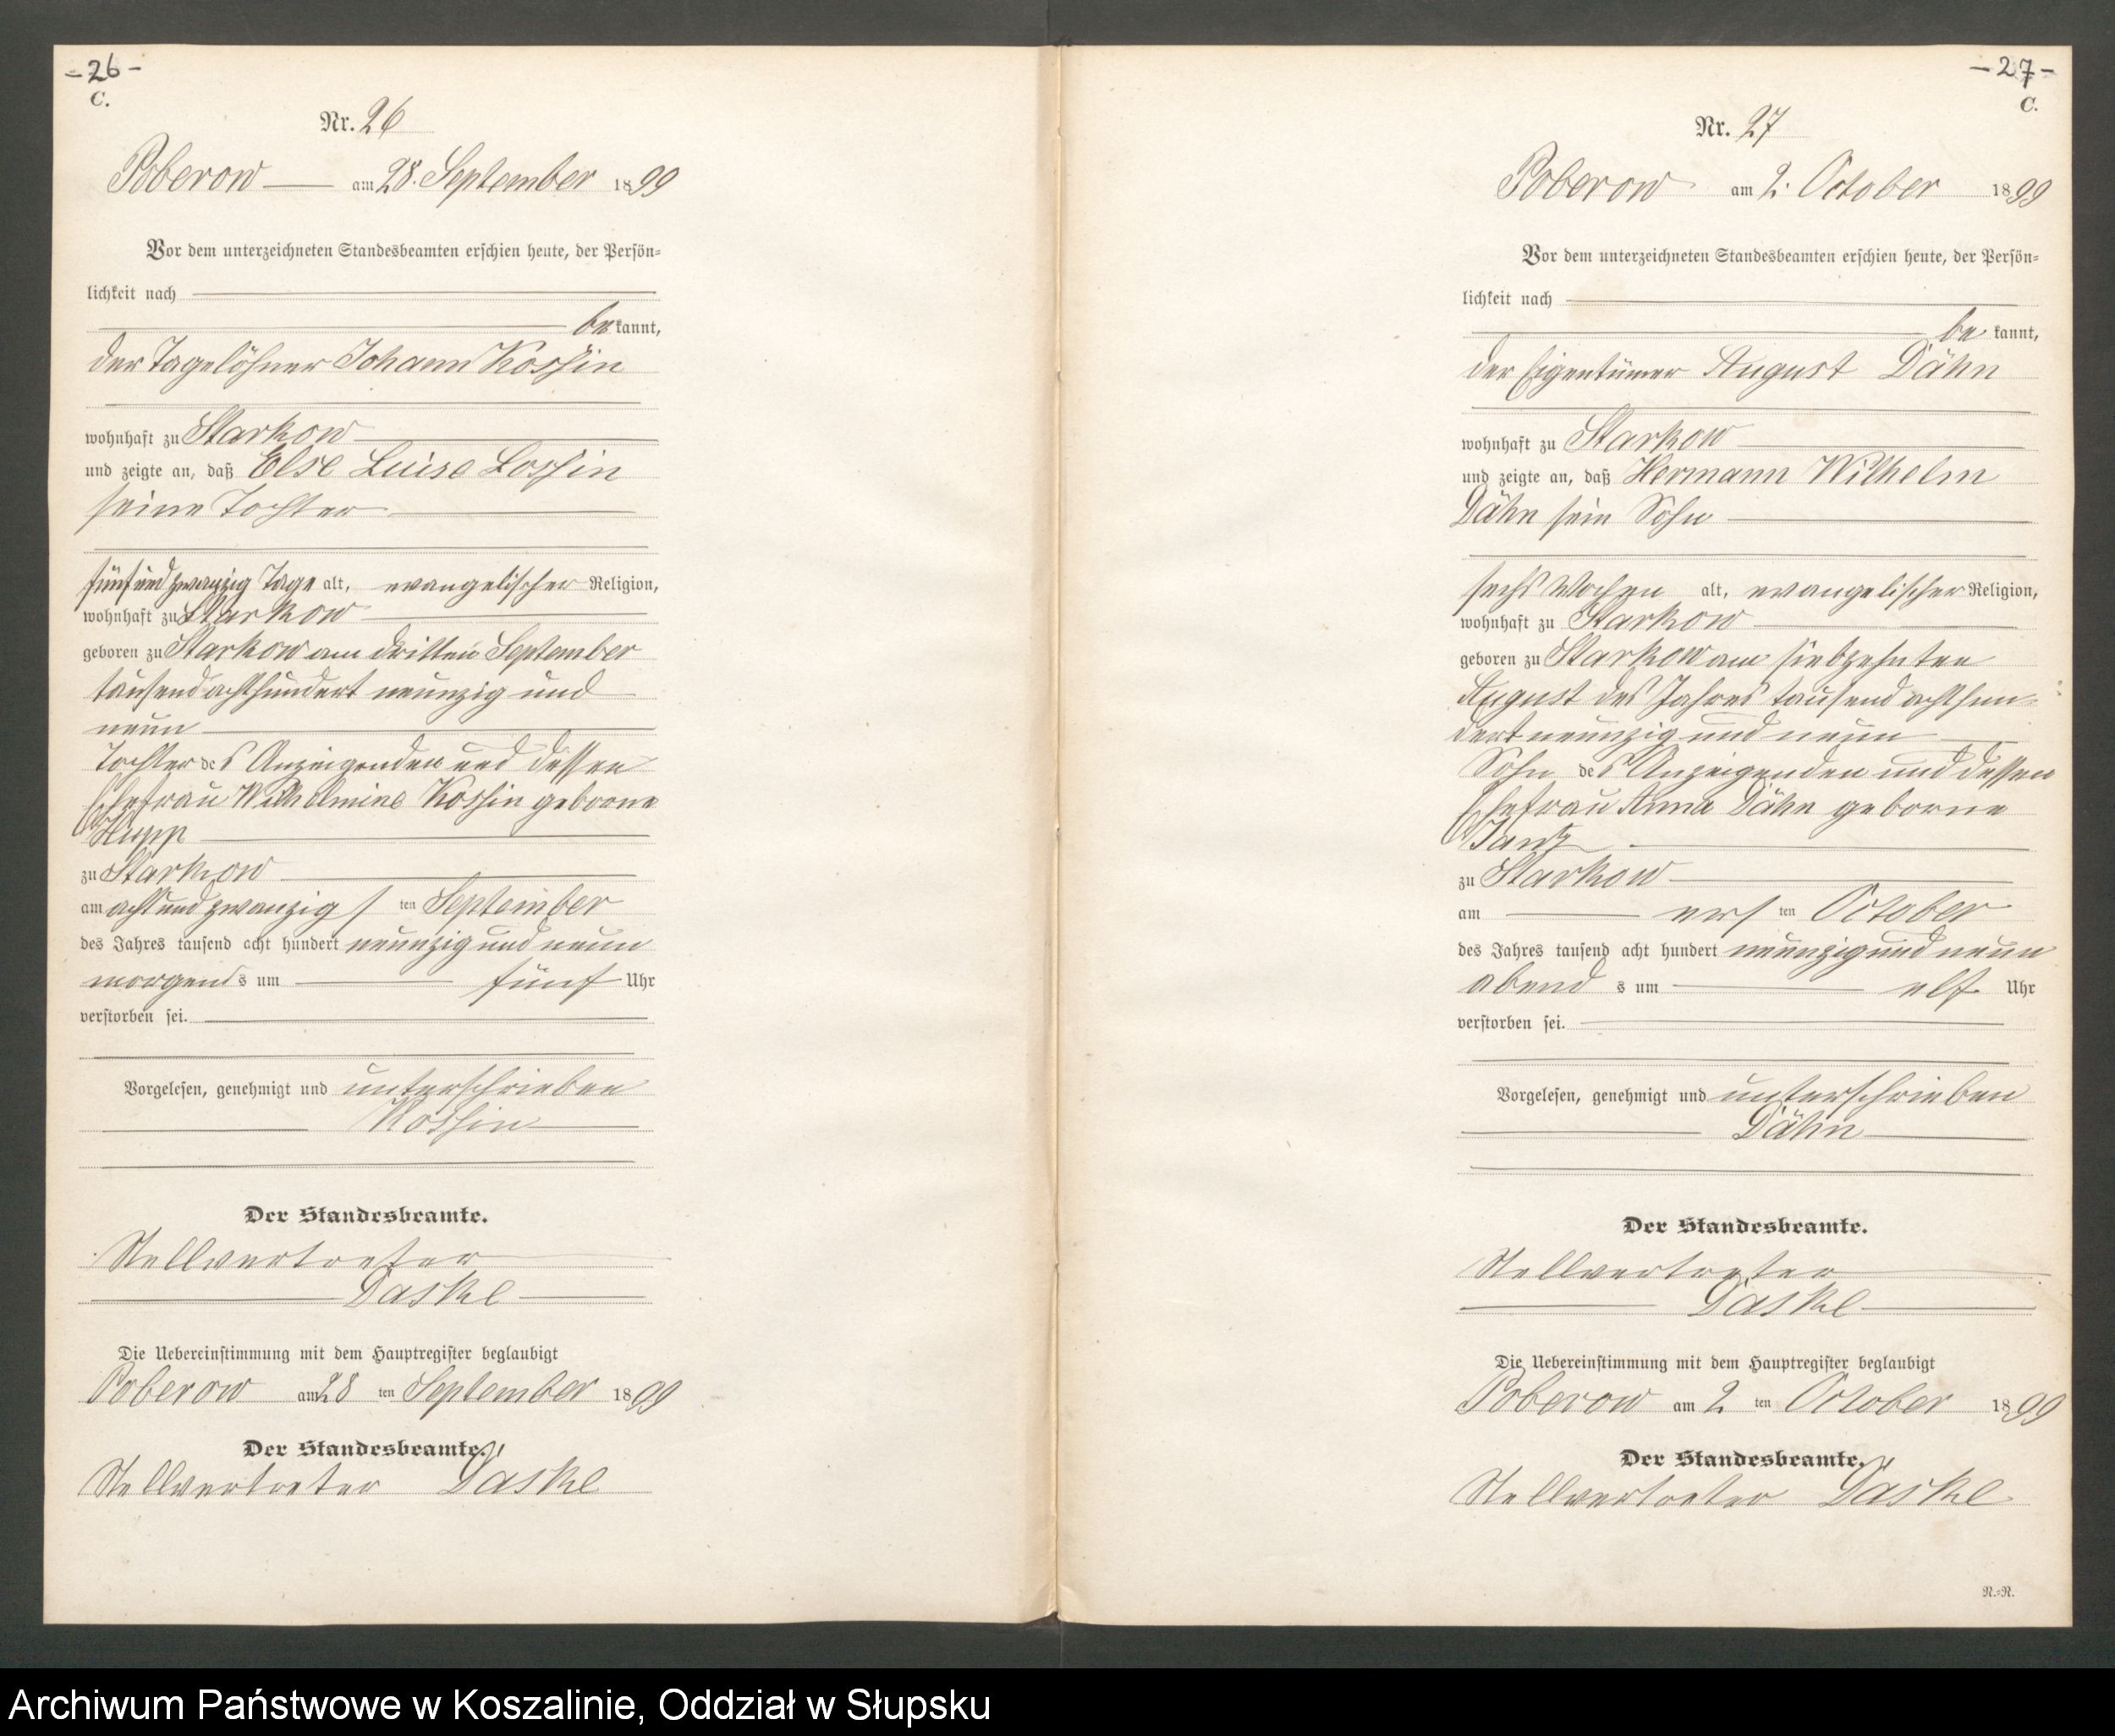 -26-
C.
Nr. 26
Poberow am 28. September 1899
Vor dem unterzeichneten Standesbeamten erschien heute, der Persön-
lichkeit nach
bekannt,
der Tagelöhner Johann Kossin
wohnhaft zu Starkow
und zeigte an, daß Else Luise Lossin
seine Tochter
fünfundzwanzig Tage alt, evangelischer Religion,
wohnhaft zu Starkow
geboren zu Starkow am dritten September
tausend achthundert neunzig und
neun
Tochter des Anzeigenden und dessen
Ehefrau Wilhelmine Kossin geborne
zu Starkow
am acht und zwanzigsten September
des Jahres tausend acht hundert neunzig und neun
morgens um fünf Uhr
verstorben sei.
Vorgelesen, genehmigt und unterschrieben
Kossin
Der Standesbeamte.
Stellvertreter
Daske
Die Uebereinstimmung mit dem Hauptregister beglaubigt
Poberow am 28 ten September 1899
Der Standesbeamte.
Stellvertreter Daske
-27-
C.
Nr. 27
Poberow am 2. October 1899
Vor dem unterzeichneten Standesbeamten erschien heute, der Persön-
lichkeit nach
bekannt,
der Eigentümer August Dähn
wohnhaft zu Starkow
und zeigte an, daß Hermann Wilhelm
Dähn sein Sohn
sechs Wochen alt, evangelischer Religion,
wohnhaft zu Starkow
geboren zu Starkow am siebzehnten
August des Jahres tausend achthun-
dert neunzig und neun
Sohn des Anzeigenden und dessen
Ehefrau Anna Dähn geborne
Jantz
zu Starkow
am ersten October
des Jahres tausend acht hundert neunzig und neun
abends um elf Uhr
verstorben sei.
Vorgelesen, genehmigt und unterschrieben
Dähn
Der Standesbeamte.
Stellvertreter
Daske
Die Uebereinstimmung mit dem Hauptregister beglaubigt
Poberow am 2 ten October 1899
Der Standesbeamte.
Stellvertreter Daske
N.=N.
Archiwum Państwowe w Koszalinie, Oddział w Słupsku